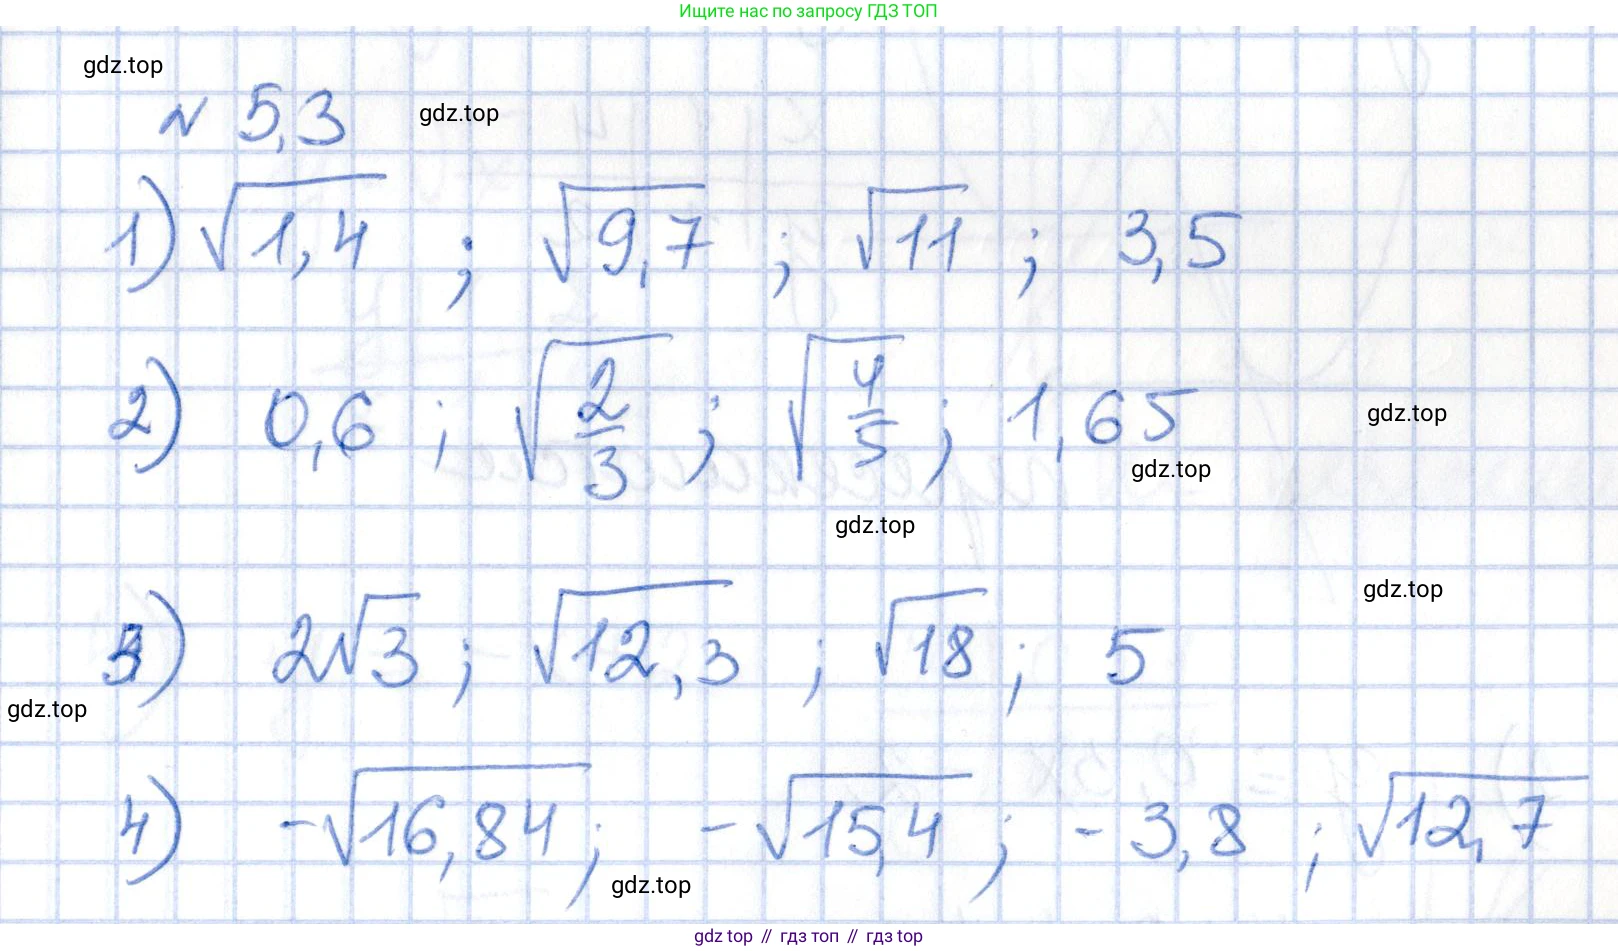 Ищите нас по запросу ГДЗ ТОП
gdz.top
№ 5,3
gdz.top
1) √1,4 ; √9,7 ; √11 ; 3,5
2) 0,6 ; √(2/3) ; √(4/5) ; 1,65
gdz.top
gdz.top
gdz.top
gdz.top
3) 2√3 ; √12,3 ; √18 ; 5
gdz.top
4) -√16,84 ; -√15,4 ; -3,8 ; √12,7
gdz.top
gdz top // гдз топ // гдз top